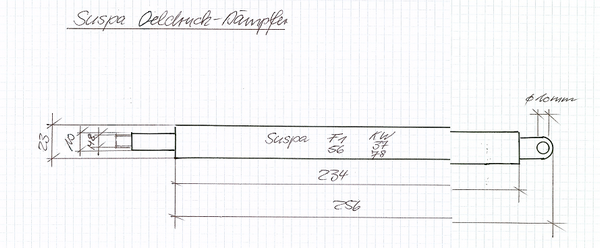 Suspa Oeldruck-Dämpfer
φ 10mm
23
10
M8
Suspa F1 KW
56 37
78
234
256